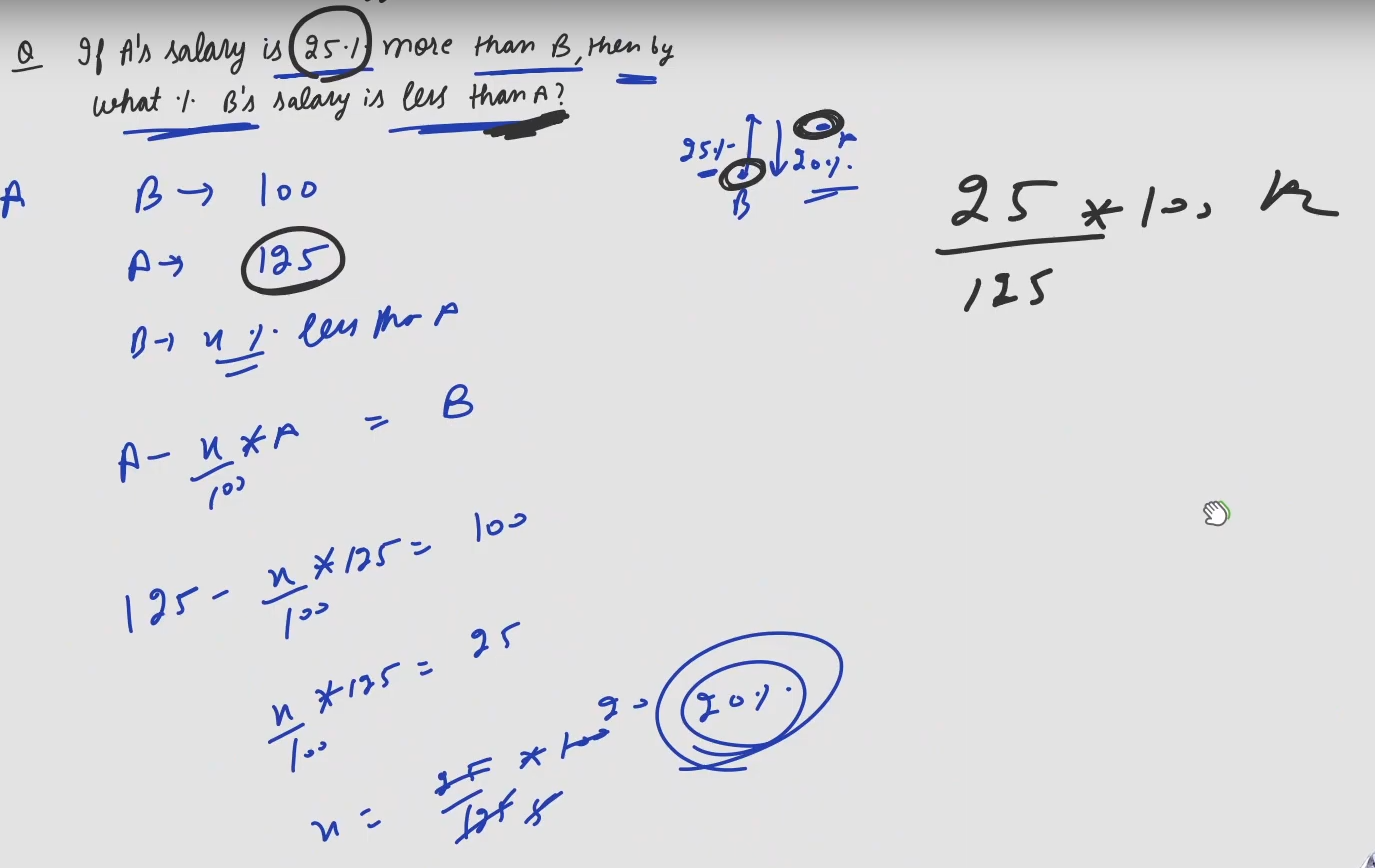 Q If A's salary is 25% more than B, then by
what % B's salary is less than A?
25%
20%.
B
A
B → 100
A → 125
B → x % less than A
A - x/100 * A = B
125 - x/100 * 125 = 100
x/100 * 125 = 25
x = 25/125 * 100
5
20
20%
25/125 * 100